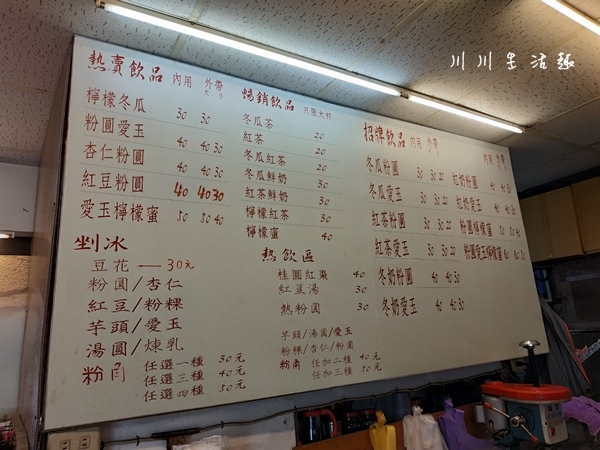 川川生活趣
熱賣飲品 內用 外帶 大 小
檸檬冬瓜 30 30
粉圓愛玉 40 40 30
杏仁粉圓 40 40 30
紅豆粉圓 40 40 30
愛玉檸檬蜜 50 50 40
剉冰
豆花 — 30元
粉圓/杏仁
紅豆/粉粿
芋頭/愛玉
湯圓/煉乳
粉角
任選一種 30元
任選三種 40元
任選四種 50元
暢銷飲品 只限大杯
冬瓜茶 20
紅茶 20
冬瓜紅茶 20
冬瓜鮮奶 30
紅茶鮮奶 30
檸檬紅茶 30
檸檬蜜 40
熱飲區
桂圓紅棗 40
紅豆湯 30
熱粉圓 30
芋頭/湯圓/愛玉
粉粿/杏仁/粉圓
粉角 任加二種 40元
任加三種 50元
招牌飲品 內用 外帶
冬瓜粉圓 30 30 20
冬瓜愛玉 30 30 20
紅茶粉圓 30 30 20
紅茶愛玉 30 30 20
冬奶粉圓 40 40 30
冬奶愛玉 40 40 30
內用 外帶
紅奶粉圓 40 40 30
紅奶愛玉 40 40 30
粉圓檸檬蜜 50 50 40
粉圓愛玉檸檬蜜 50 50 40